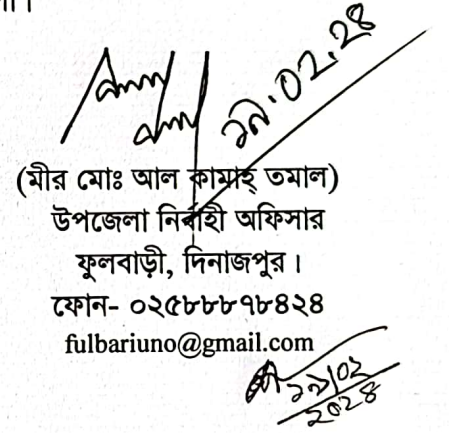 ১৯.০২.২৪
(মীর মোঃ আল কামাহ্ তমাল)
উপজেলা নির্বাহী অফিসার
ফুলবাড়ী, দিনাজপুর।
ফোন- ০২৫৮৮৮৭৮৪২৪
fulbariuno@gmail.com
১৯/০২
২০২৪